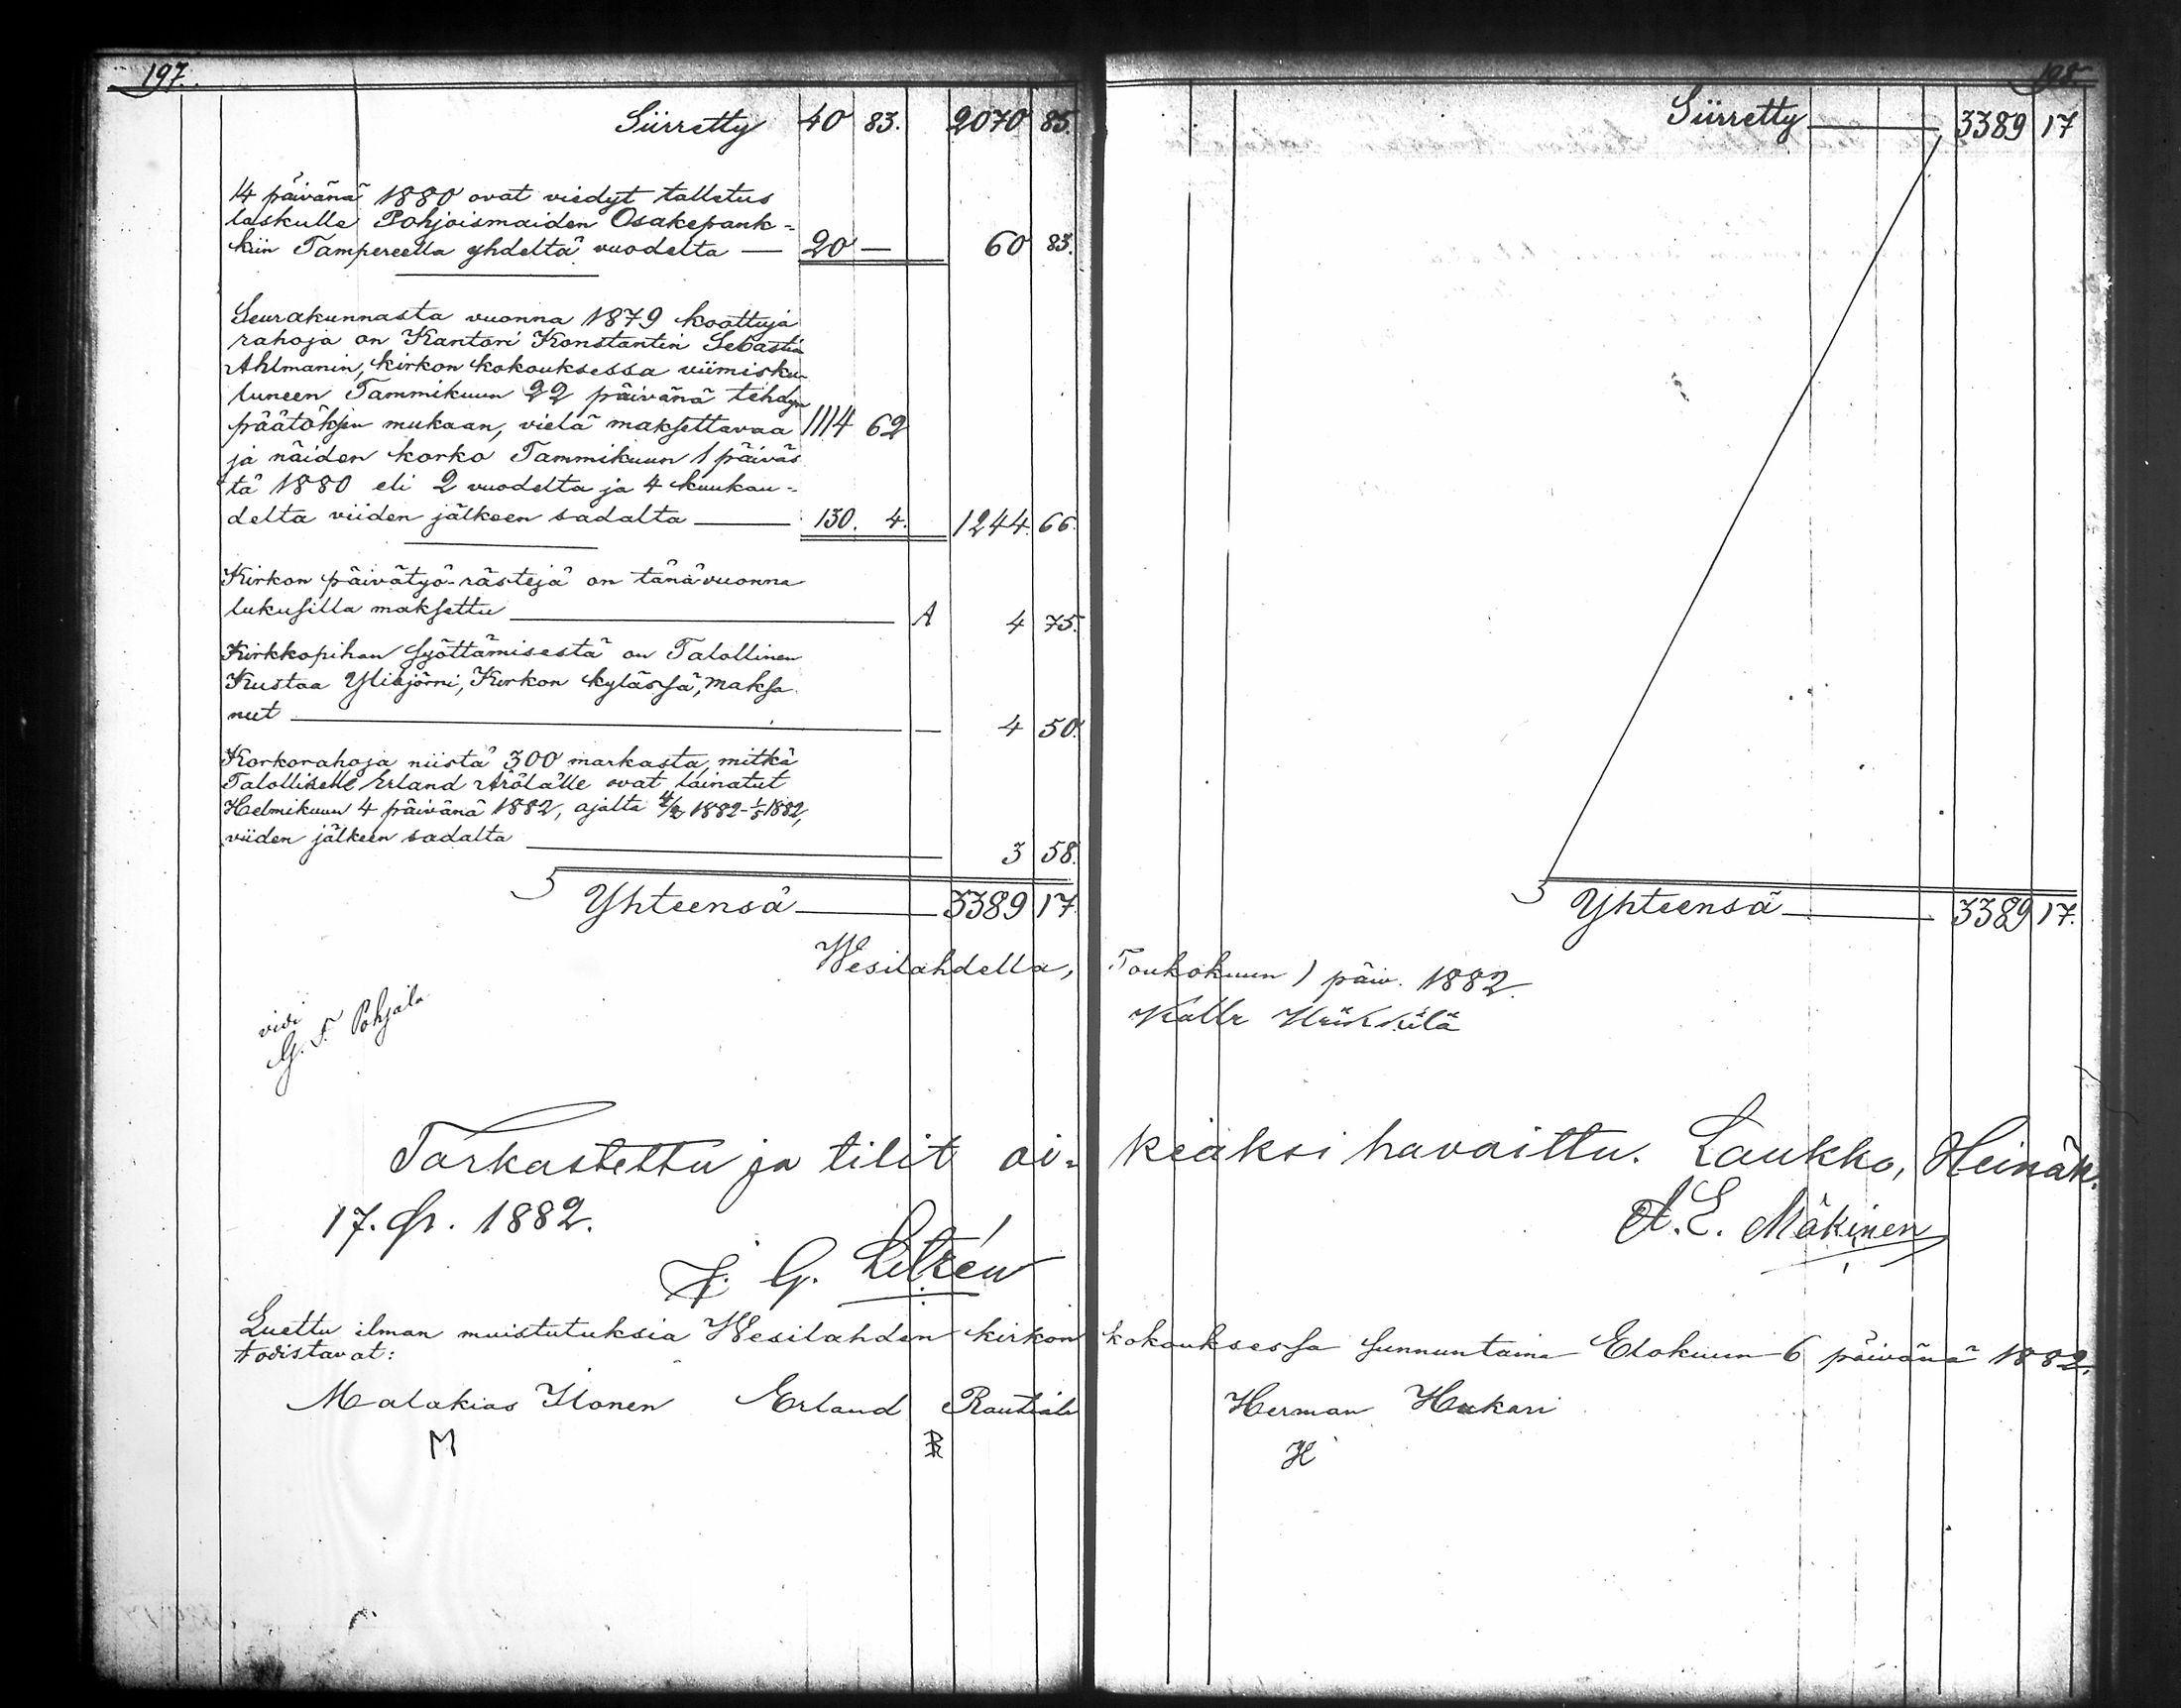 197.
Siirretty 40 83. 2070 85.
14 päivänä 1880 ovat viedyt talletus
laskulle Pohjoismaiden Osakepank=
kiin Tampereella yhdeltä vuodelta — 20 — 60 83.
Seurakunnasta vuonna 1879 koottuja
rahoja on Kantori Konstantin Sebastia
Ahlmanin, kirkon kokouksessa viimisku-
luneen Tammikuun 22 päivänä tehdyn
päätöksen mukaan, vielä maksettavaa 1114 62
ja näiden korko Tammikuun 1 päiväs
tä 1880 eli 2 vuodelta ja 4 kuukau=
delta viiden jälkeen sadalta — 130. 4. 1244. 66.
Kirkon päivätyö-rästejä on tänä vuonna
lukusilla maksettu — A 4 75.
Kirkkopihan syöttämisestä on Talollinen
Kustaa Yliajörni, Kirkon kylässä, maksa
nut — — 4 50.
Korkorahoja niistä 300 markasta, mitkä
Talolliselle Erland Arölälle ovat lainatut
Helmikuun 4 päivänä 1882, ajalta 4/2 1882-1/5 1882,
viiden jälkeen sadalta — 3 58.
Yhteensä — 3389 17
198.
Siirretty — 3389 17
Yhteensä — 3389 17.
Wesilahdella, Toukokuun 1 päiv. 1882.
Kalle Krükkilä
vidi
G. F. Pohjala
Tarkastettu ja tilit oi= keaksi havaittu. Laukko, Heinäk.
17. p. 1882.
A. E. Mäkinen
F. G. Litzén
Luettu ilman muistutuksia Wesilahden kirkon kokouksessa sunnuntaina Elokuun 6 päivänä 1882.
todistavat:
Malakias Ilonen Erland Rautiala Herman Hukari
M R H